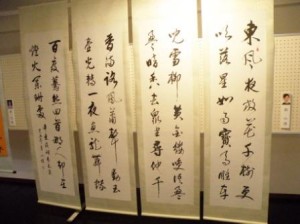 東風夜放花千樹更
吹落星如雨寶馬雕車
兒雪柳黃金縷笑語盈
盈暗香去眾里尋他千
香滿路鳳簫聲動玉
壺光轉一夜魚龍舞蛾
百度驀然回首那人卻在
燈火闌珊處